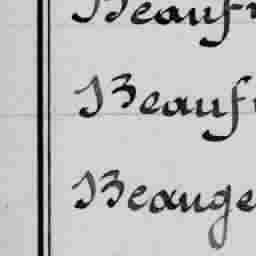 Beauf
Beauf
Beauge